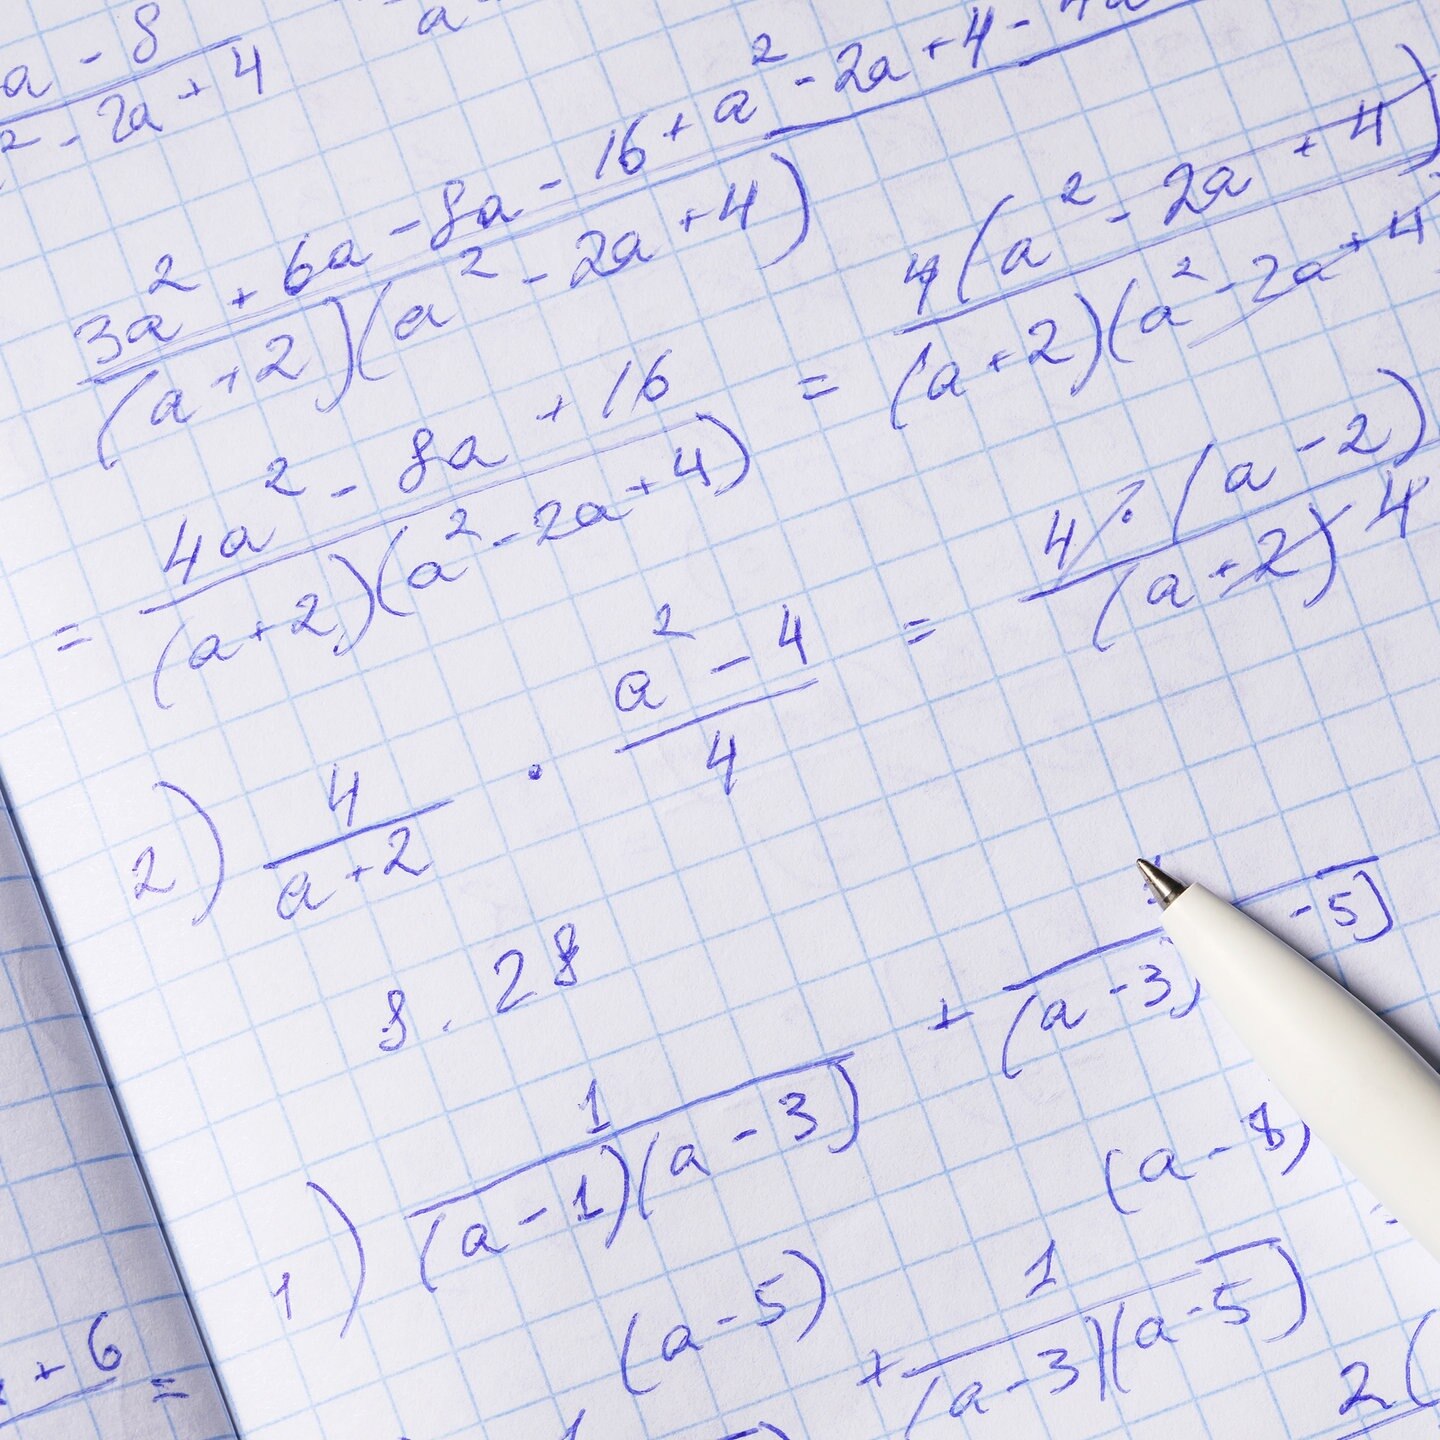 a - 8
a
² - 2a + 4
3a² + 6a - 8a - 16 + a² - 2a + 4 - 4a
(a+2)(a² - 2a + 4)
= 4(a² - 2a + 4)
(a+2)(a² - 2a + 4
= 4a² - 8a + 16
(a+2)(a² - 2a + 4)
= 4 · (a - 2)
(a+2) 4
2) 4 · a² - 4
a+2 4
8. 28
+
(a - 3) - 5)
1) 1
(a - 1)(a - 3)
(a - 8)
=
(a - 5)
+ 1
(a - 3)(a - 5)
2(
+ 6 =
1